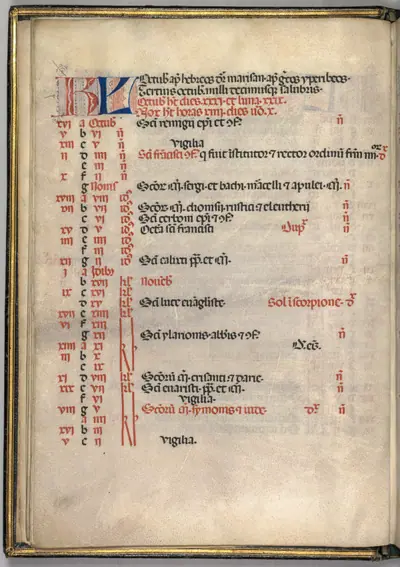 KL Octub ap hebreos dr marisan ap grecos yperbeos.
Tertius octub milli decimusqꝫ salubris.
Octub ht dies xxxi et luna xxix.
Nox ht horas xiiii dies uo x.
xvi a Octub Sci remigii epi et ɔf. n̄
v b vi n̄
xiii c v n̄ Vigilia
ii d iiii n̄ Sci francisci ɔf q fuit istitutor et rector ordinum frm
e iii n̄
x f ii n̄
g Nonis Scor m̄. sergi et bachi. marcelli et apulei. m̄. n̄
xviii a viii id'
vii b vii id' Scor m̄. dionisii rustici et eleutherii n̄
c vi id' Sci cerbonii epi et ɔf.
xv d v id' Octa sci francisci Dup
iiii e iiii id'
f iii id'
xii g ii id' Sci calixti pp. et m̄. n̄
i a Idib'
b xvii kl' noueb
ix c xvi kl'
d xv kl' Sci luce euagliste. Sol i scorpione. d
xvii e xiiii kl'
vi f xiii
g xii Sci ylarionis abbis et ɔf. n̄
xiiii a xi
iii b x
c ix
xi d viii kl' Scorum m̄. crisanti et darie. n̄
xix e vii kl' Sci euaristi. pp. et m̄. n̄
f vi Vigilia.
viii g v Scorum m̄. symonis et iude n̄
a iiii
xvi b iii
v c ii Vigilia.